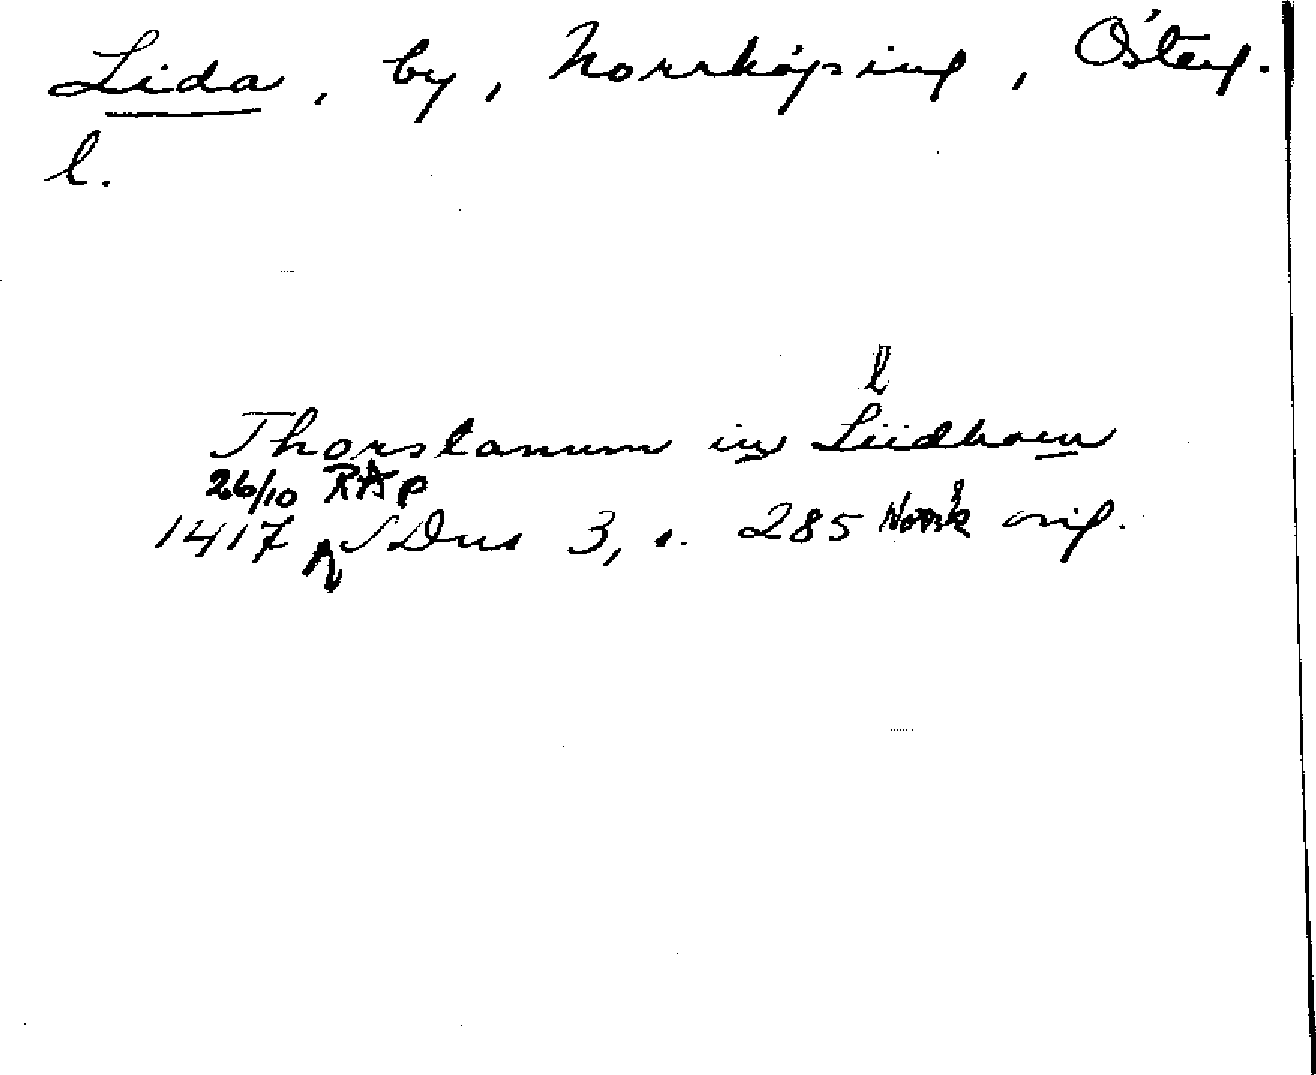 Lida, by, Norrköping, Österg.
l.
l
Thorstanum in Liidhom
26/10 RAp
1417 SDns 3, s. 285 Norrk orig.